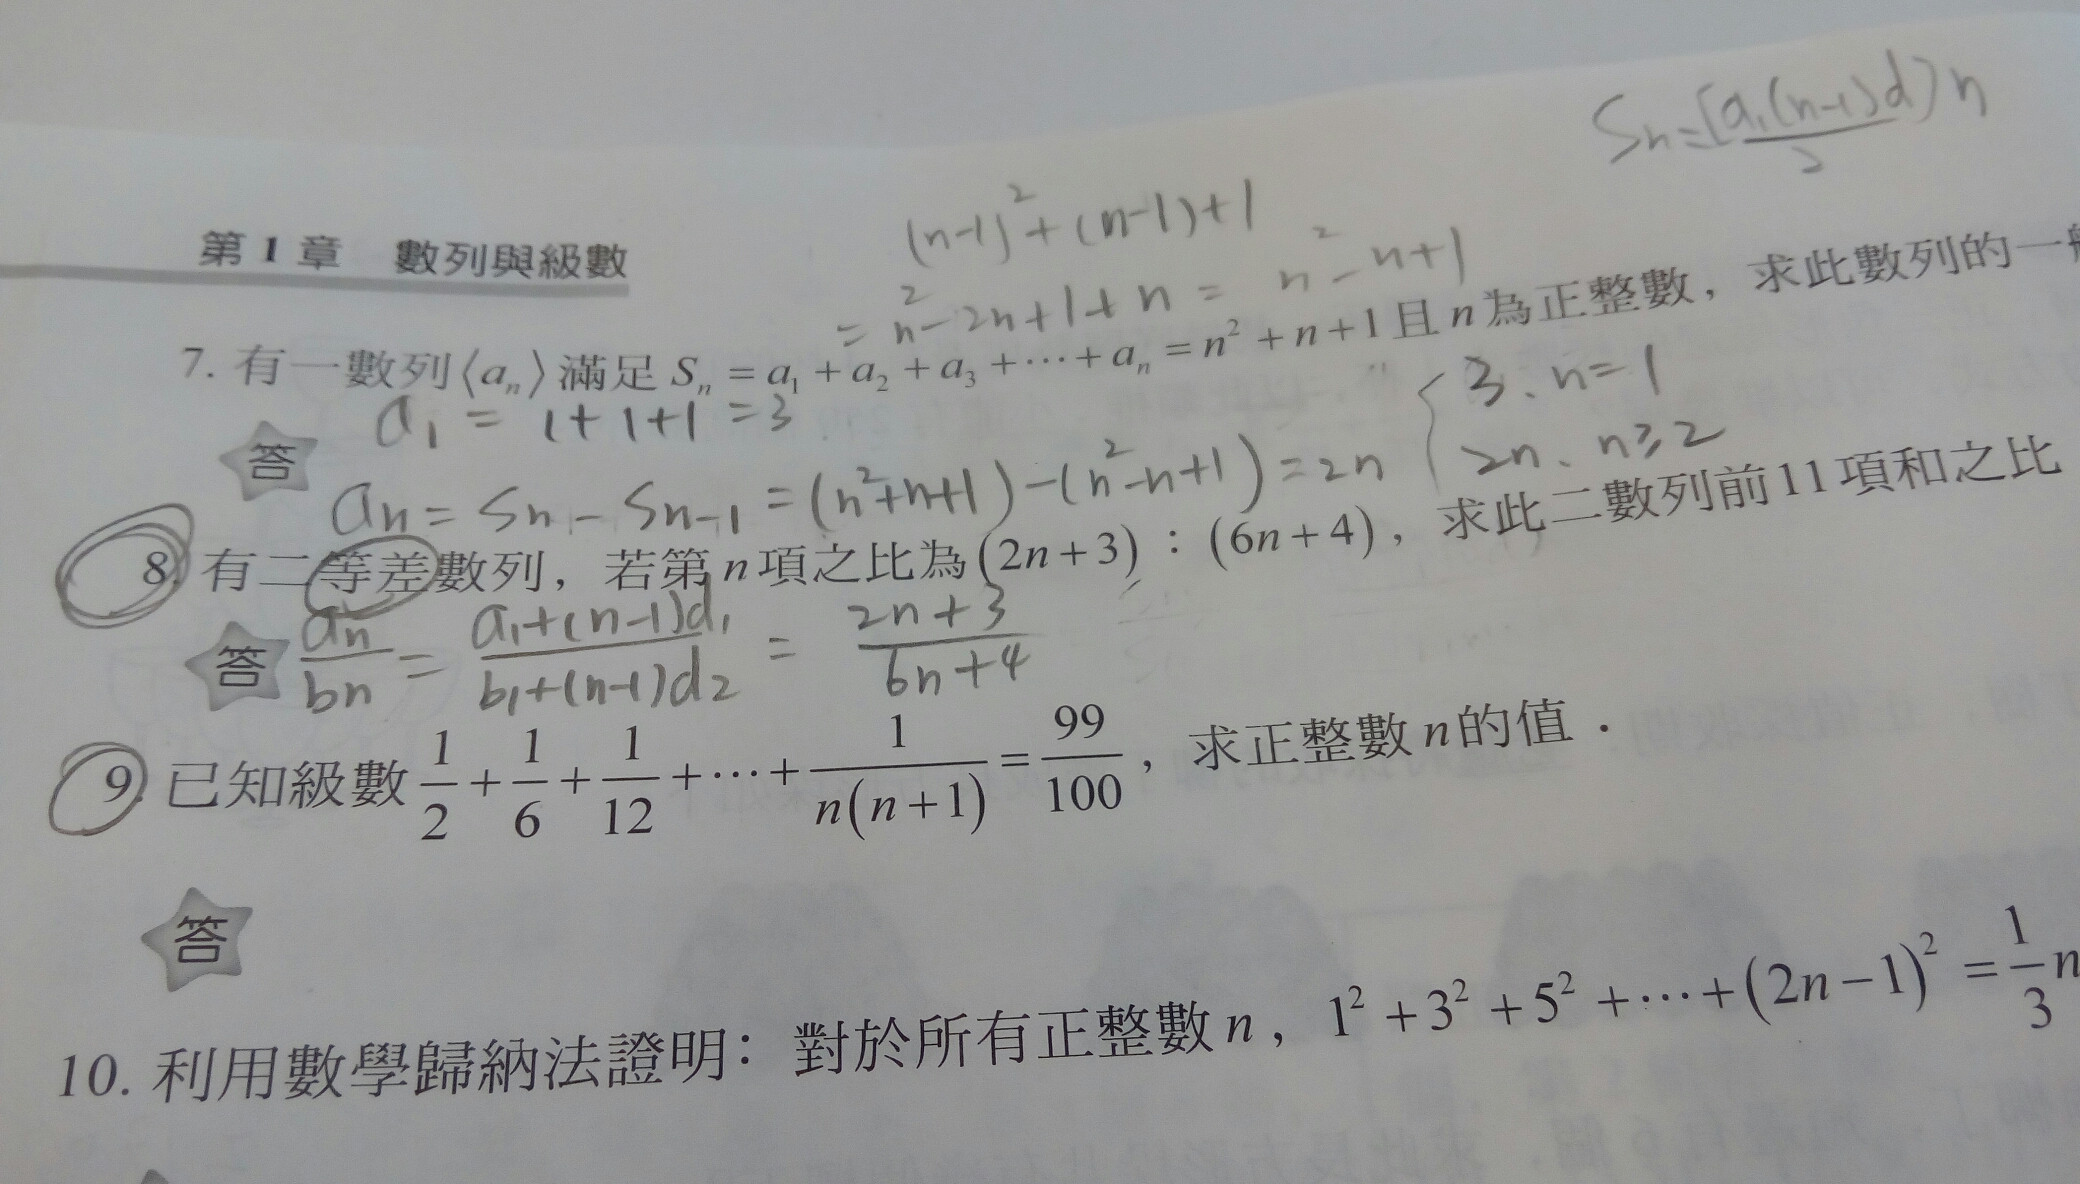 Sn=[a₁(n-1)d)n/2
第1章 數列與級數
(n-1)²+(n-1)+1
=n²-2n+1+n=n²-n+1
7. 有一數列⟨aₙ⟩滿足 Sₙ=a₁+a₂+a₃+⋯+aₙ=n²+n+1且n為正整數，求此數列的一
a₁=1+1+1=3
{3、n=1
2n、n≥2
答
an=Sn-Sn-1=(n²+n+1)-(n²-n+1)=2n
8. 有二等差數列，若第n項之比為(2n+3)：(6n+4)，求此二數列前11項和之比
答 an/bn=(a₁+(n-1)d₁)/(b₁+(n-1)d₂)=(2n+3)/(6n+4)
9. 已知級數1/2+1/6+1/12+⋯+1/n(n+1)=99/100，求正整數n的值．
答
10. 利用數學歸納法證明：對於所有正整數n，1²+3²+5²+⋯+(2n-1)²=1/3n